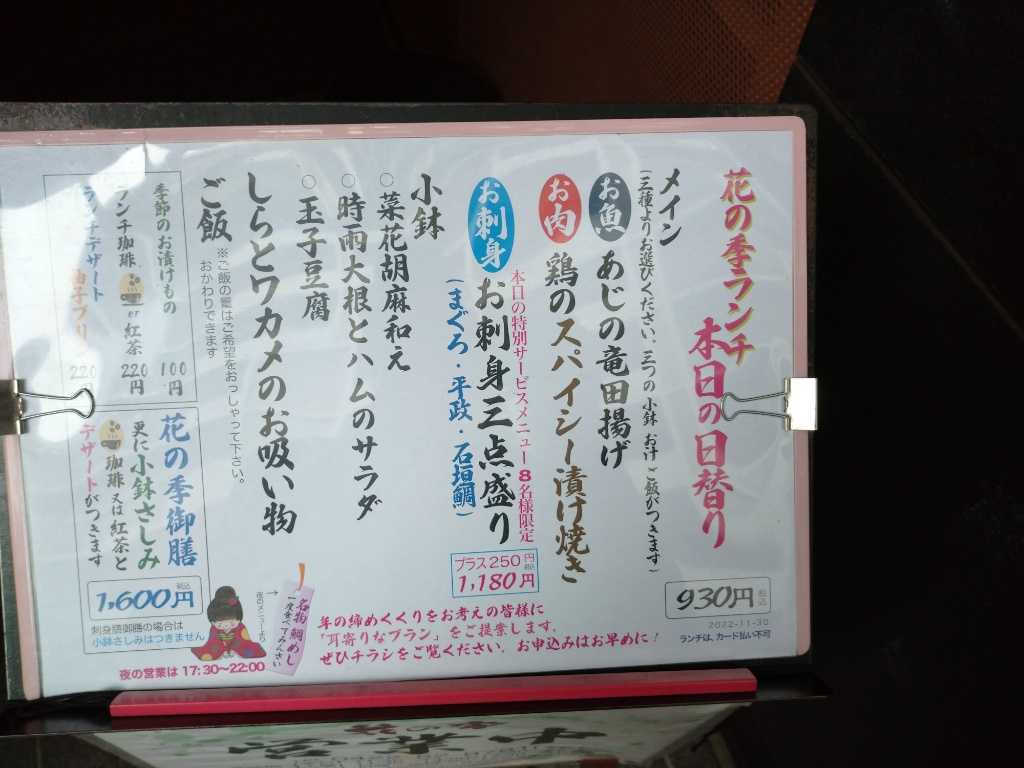 花の季ランチ
本日の日替り
930円 税込
2022-11-30
ランチは、カード払い不可
メイン
(三種よりお選びください、三つの小鉢 お汁 ご飯がつきます)
お魚 あじの竜田揚げ
お肉 鶏のスパイシー漬け焼き
本日の特別サービスメニュー 8名様限定
お刺身 お刺身三点盛り
(まぐろ・平政・石垣鯛)
プラス250円
1,180円 税込
小鉢
○菜花胡麻和え
○時雨大根とハムのサラダ
○玉子豆腐
しらとワカメのお吸い物
ご飯
※ご飯の量はご希望をおっしゃって下さい。
おかわりできます
季節のお漬けもの 100円
ランチ珈琲 or 紅茶 220円
ランチデザート 柚子プリン 220円
花の季御膳
更に小鉢さしみ
珈琲 又は 紅茶と
デザートがつきます
1,600円 税込
刺身膳御膳の場合は
小鉢さしみはつきません
夜の営業は 17:30〜22:00
夜のメニューより→
名物 鯛めし
一度食べてみんさい
年の締めくくりをお考えの皆様に
「耳寄りなプラン」をご提案します。
ぜひチラシをご覧ください。お申込みはお早めに!
営業中